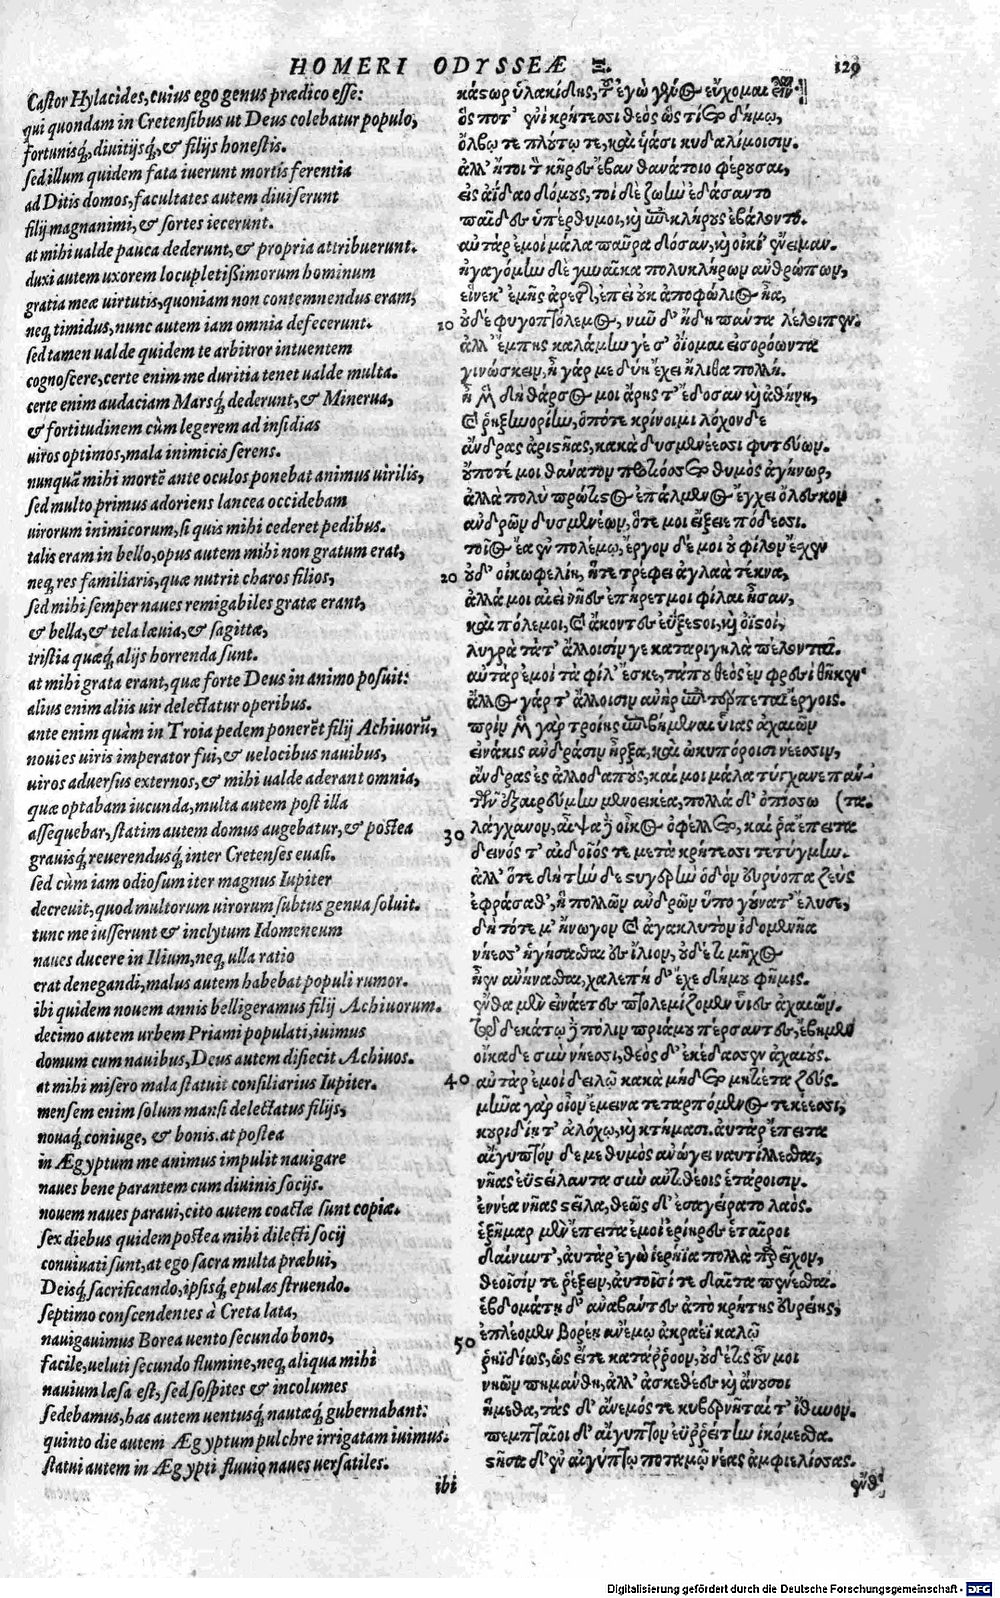 HOMERI ODYSSEÆ Ξ. 129
Castor Hylacides, cuius ego genus prædico esse:
qui quondam in Cretensibus ut Deus colebatur populo,
fortunisq́, divitijsq́, & filijs honestis.
sed illum quidem fata iuerunt mortis ferentia
ad Ditis domos, facultates autem diuiserunt
filij magnanimi, & sortes iecerunt.
at mihi ualde pauca dederunt, & propria attribuerunt.
duxi autem uxorem locupletißimorum hominum
gratia meæ uirtutis, quoniam non contemnendus eram,
neq́ timidus, nunc autem iam omnia defecerunt.
sed tamen ualde quidem te arbitror intuentem
cognoscere, certe enim me duritia tenet ualde multa.
certe enim audaciam Marsq́ dederunt, & Minerua,
& fortitudinem cùm legerem ad insidias
uiros optimos, mala inimicis serens.
nunquā mihi mortē ante oculos ponebat animus uirilis,
sed multo primus adoriens lancea occidebam
uirorum inimicorum, si quis mihi cederet pedibus.
talis eram in bello, opus autem mihi non gratum erat,
neq́ res familiaris, quæ nutrit charos filios,
sed mihi semper naues remigabiles gratæ erant,
& bella, & tela læuia, & sagittæ,
tristia quæq́ alijs horrenda sunt.
at mihi grata erant, quæ forte Deus in animo posuit:
alius enim aliis uir delectatur operibus.
ante enim quàm in Troia pedem ponerēt filij Achiuorū,
nouies uiris imperator fui, & uelocibus nauibus,
uiros aduersus externos, & mihi ualde aderant omnia,
quæ optabam iucunda, multa autem post illa
assequebar, statim autem domus augebatur, & postea
grauisq́ reuerendusq́ inter Cretenses euasi.
sed cùm iam odiosum iter magnus Iupiter
decreuit, quod multorum uirorum subtus genua soluit.
tunc me iusserunt & inclytum Idomeneum
naues ducere in Ilium, neq́ ulla ratio
erat denegandi, malus autem habebat populi rumor.
ibi quidem nouem annis belligeramus filij Achiuorum.
decimo autem urbem Priami populati, iuimus
domum cum nauibus, Deus autem disiecit Achiuos.
at mihi misero mala statuit consiliarius Iupiter.
mensem enim solum mansi delectatus filijs,
nouaq́ coniuge, & bonis. at postea
in Ægyptum me animus impulit nauigare
naues bene parantem cum diuinis socijs.
nouem naues paraui, cito autem coactæ sunt copiæ.
sex diebus quidem postea mihi dilecti socij
conuiuati sunt, at ego sacra multa præbui,
Deisq́ sacrificando, ipsisq́ epulas struendo.
septimo conscendentes à Creta lata,
nauigauimus Borea uento secundo bono,
facile, ueluti secundo flumine, neq́ aliqua mihi
nauium læsa est, sed sospites & incolumes
sedebamus, has autem uentusq́ nautæq́ gubernabant:
quinto die autem Ægyptum pulchre irrigatam iuimus.
statui autem in Ægypti fluuio naues uersatiles.
ibi
κάστωρ ὑλακίδης, τοῦ ἐγὼ γένος εὔχομαι εἶναι
ὅς ποτ' ἐνὶ κρήτεσσι θεὸς ὣς τίετο δήμῳ,
ὄλβῳ τε πλούτῳ τε, καὶ υἱάσι κυδαλίμοισιν.
ἀλλ' ἤτοι τὸν κῆρες ἔβαν θανάτοιο φέρουσαι,
εἰς ἀΐδαο δόμους, τοὶ δὲ ζωὴν ἐδάσαντο
παῖδες ὑπέρθυμοι, καὶ ἐπὶ κλήρους ἐβάλοντο.
αὐτὰρ ἐμοὶ μάλα παῦρα δόσαν, καὶ οἰκί' ἔνειμαν.
ἠγαγόμην δὲ γυναῖκα πολυκλήρων ἀνθρώπων,
εἵνεκ' ἐμῆς ἀρετῆς, ἐπεὶ οὐκ ἀποφώλιος ἦα,
10 οὐδὲ φυγοπτόλεμος, νῦν δ' ἤδη πάντα λέλοιπεν.
ἀλλ' ἔμπης καλάμην γέ σ' ὀΐομαι εἰσορόωντα
γινώσκειν, ἦ γάρ με δύη ἔχει ἤλιθα πολλή.
ἦ μὲν δὴ θάρσος μοι ἄρης τ' ἔδοσαν καὶ ἀθήνη,
καὶ ῥηξηνορίην, ὁπότε κρίνοιμι λόχονδε
ἄνδρας ἀριστῆας, κακὰ δυσμενέεσσι φυτεύων.
οὔποτέ μοι θάνατον προτιόσσετο θυμὸς ἀγήνωρ,
ἀλλὰ πολὺ πρώτιστος ἐπάλμενος ἔγχει ὄλεσκον
ἀνδρῶν δυσμενέων, ὅτε μοι εἴξειε πόδεσσι.
τοῖος ἔα ἐν πολέμῳ, ἔργον δέ μοι οὐ φίλον ἔσκεν
20 οὐδ' οἰκωφελίη, ἥτε τρέφει ἀγλαὰ τέκνα,
ἀλλά μοι αἰεὶ νῆες ἐπήρετμοι φίλαι ἦσαν,
καὶ πόλεμοι, καὶ ἄκοντες ἐΰξεστοι, καὶ ὀϊστοί,
λυγρὰ τάτ' ἄλλοισίν γε καταριγηλὰ πέλονται.
αὐτὰρ ἐμοὶ τὰ φίλ' ἔσκε, τά που θεὸς ἐν φρεσὶ θῆκεν
ἄλλος γάρ τ' ἄλλοισιν ἀνὴρ ἐπιτέρπεται ἔργοις.
πρὶν μὲν γὰρ τροίης ἐπιβήμεναι υἷας ἀχαιῶν
εἰνάκις ἀνδράσιν ἦρξα, καὶ ὠκυπόροισι νέεσσιν,
ἄνδρας ἐς ἀλλοδαπούς, καί μοι μάλα τύγχανε πάν-
τῶν ἐξαιρεύμην μενοεικέα, πολλὰ δ' ὀπίσσω (τα.
30 λάγχανον, αἶψα δὲ οἶκος ὀφέλλετο, καί ῥα ἔπειτα
δεινός τ' αἰδοῖός τε μετὰ κρήτεσσι τετύγμην.
ἀλλ' ὅτε δὴ τήν δε στυγερὴν ὁδὸν εὐρύοπα ζεὺς
ἐφράσαθ', ἣ πολλῶν ἀνδρῶν ὑπὸ γούνατ' ἔλυσε,
δὴ τότε μ' ἤνωγον καὶ ἀγακλυτὸν ἰδομενῆα
νήεσσ' ἡγήσασθαι ἐς ἴλιον, οὐδέ τι μῆχος
ἦεν ἀνήνασθαι, χαλεπὴ δ' ἔχε δήμου φῆμις.
ἔνθα μὲν εἰνάετες πτολεμίζομεν υἷες ἀχαιῶν.
τῷ δεκάτῳ δὲ πόλιν πριάμου πέρσαντες, ἔβημεν
οἴκαδε σὺν νήεσσι, θεὸς δ' ἐκέδασσεν ἀχαιούς.
40 αὐτὰρ ἐμοὶ δειλῷ κακὰ μήδετο μητίετα ζεύς.
μῆνα γὰρ οἶον ἔμεινα τεταρπόμενος τεκέεσσι,
κουριδίῃ τ' ἀλόχῳ, καὶ κτήμασι. αὐτὰρ ἔπειτα
αἴγυπτόν δέ με θυμὸς ἀνώγει ναυτίλλεσθαι,
νῆας ἐϋστείλαντα σὺν ἀντιθέοις ἑτάροισιν.
ἐννέα νῆας στεῖλα, θοῶς δ' ἐσαγείρατο λαός.
ἑξῆμαρ μὲν ἔπειτα ἐμοὶ ἐρίηρες ἑταῖροι
δαίνυντ', αὐτὰρ ἐγὼν ἱερήϊα πολλὰ παρεῖχον,
θεοῖσίν τε ῥέζειν, αὐτοῖσί τε δαῖτα πένεσθαι.
ἑβδομάτῃ δ' ἀναβάντες ἀπὸ κρήτης εὐρείης,
50 ἐπλέομεν βορέῃ ἀνέμῳ ἀκραέϊ καλῷ
ῥηϊδίως, ὡς εἴτε κατὰ ῥόον, οὐδέ τις οὖν μοι
νηῶν πημάνθη, ἀλλ' ἀσκεθέες καὶ ἄνουσοι
ἥμεθα, τὰς δ' ἄνεμός τε κυβερνῆταί τ' ἴθυνον.
πεμπταῖοι δ' αἴγυπτον ἐϋρρείτην ἱκόμεσθα.
στῆσα δ' ἐν αἰγύπτῳ ποταμῷ νέας ἀμφιελίσσας.
ἔνθ'
Digitalisierung gefördert durch die Deutsche Forschungsgemeinschaft - DFG